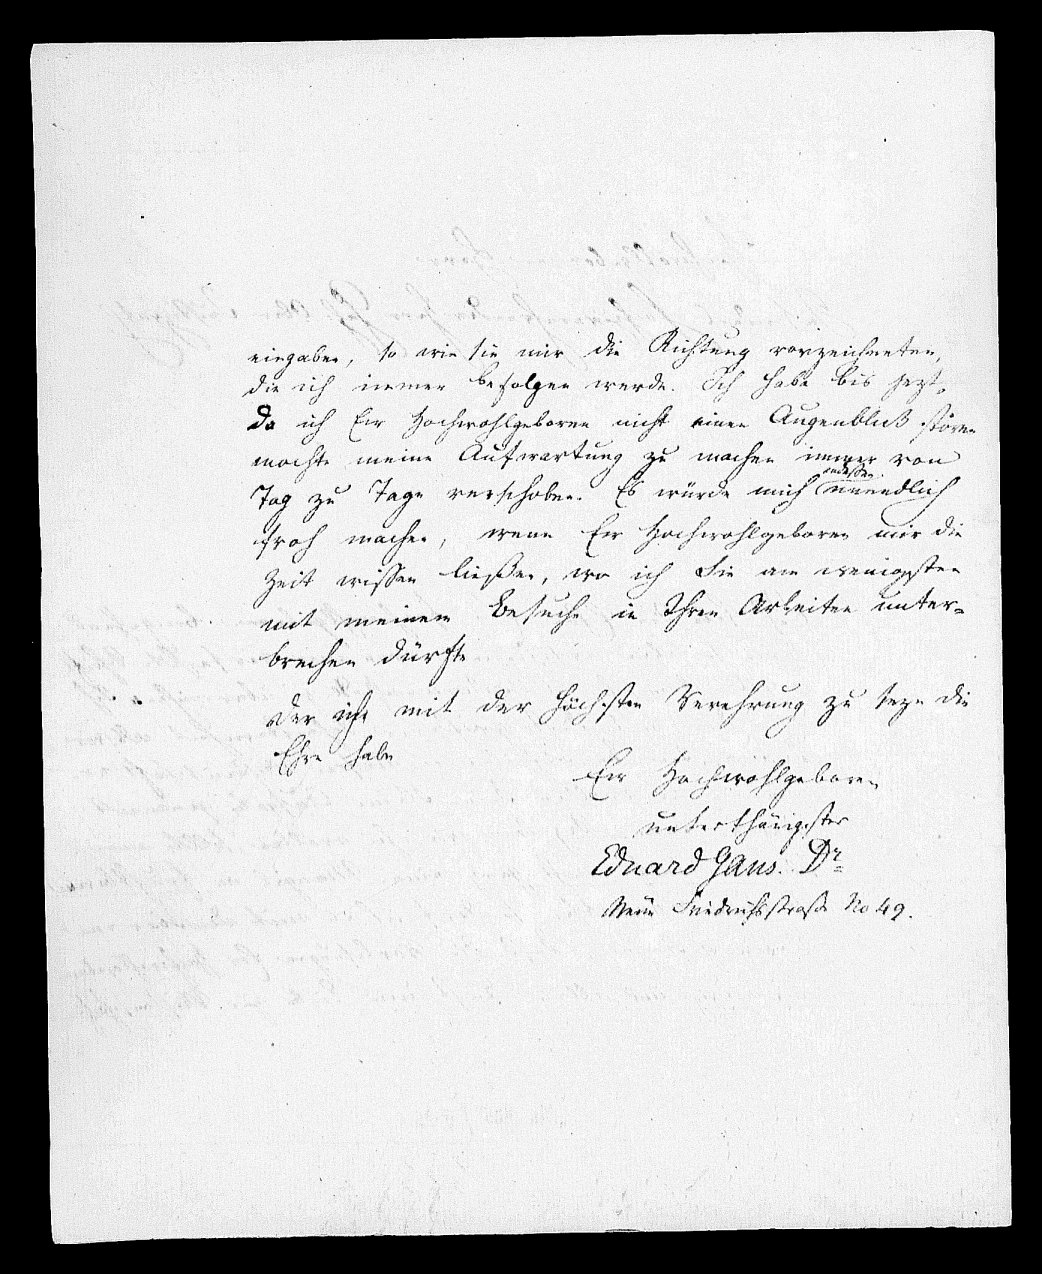 eingaben, so wie sie mir die Richtung vorzeichneten,
die ich immer befolgen werde. Ich habe bis jezt,
da ich Ew Hochwohlgeboren nicht einen Augenblick stören
mochte meine Aufwartung zu machen immer von
Tag zu Tage verschoben. Es würde mich indessen unendlich
froh machen, wenn Ew Hochwohlgeboren mir die
Zeit wissen ließen, wo ich Sie am wenigsten
mit meinem Besuche in Ihren Arbeiten unter-
brechen dürfte
Der ich mit der höchsten Verehrung zu seyn die
Ehre habe
Ew Hochwohlgeboren
unterthänigster
Eduard Gans. Dr
Neue Friedrichsstraße No 49.